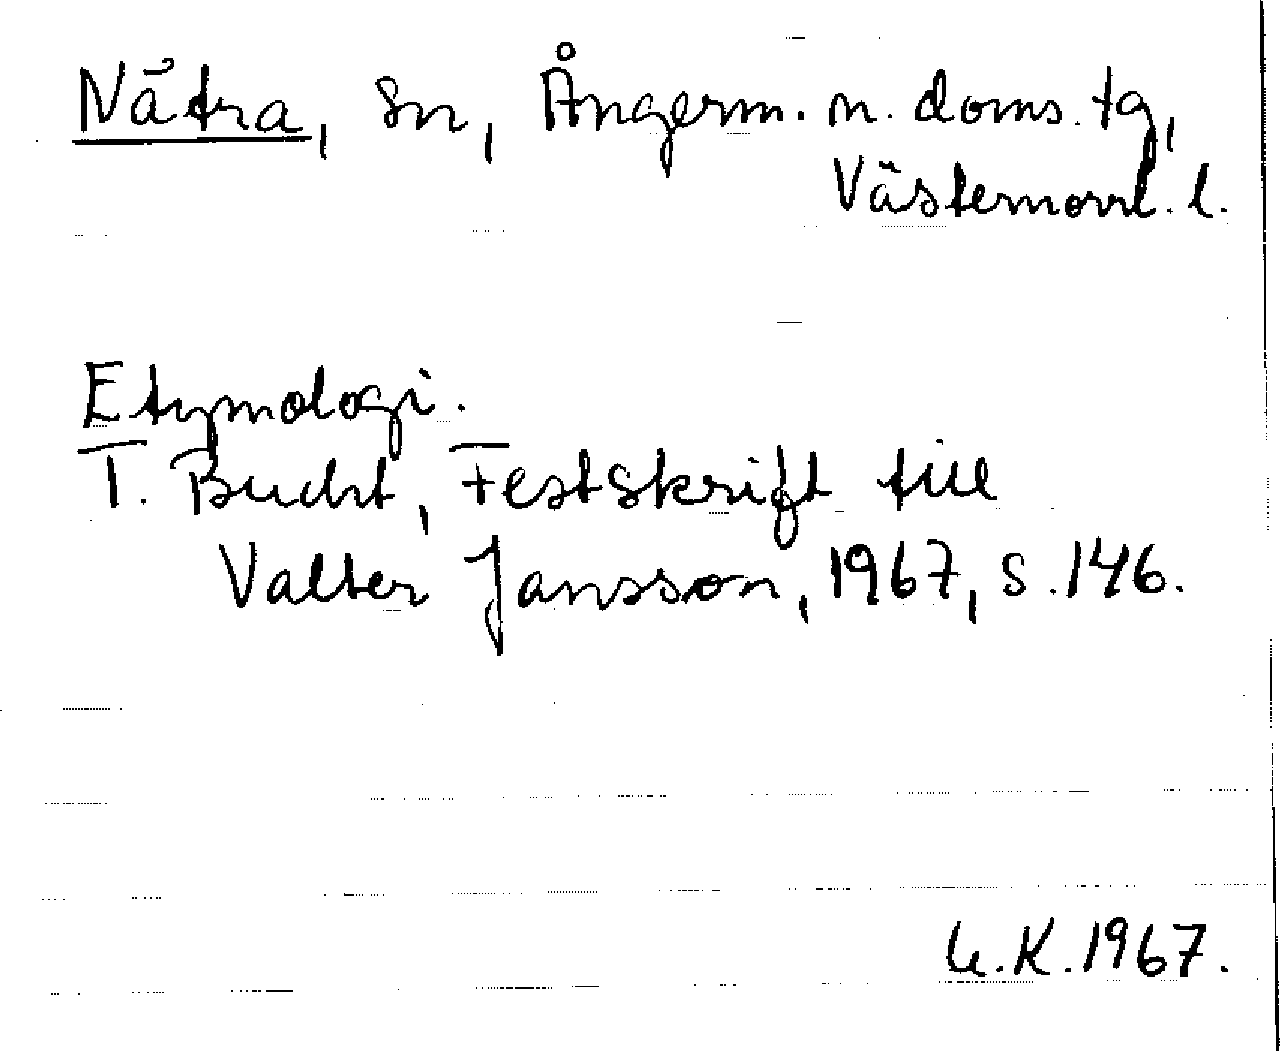 Nätra, sn, Ångerm. n. doms. tg,
Västernorrl. l.
Etymologi.
T. Bucht, Festskrift till
Valter Jansson, 1967, s. 146.
G.K. 1967.